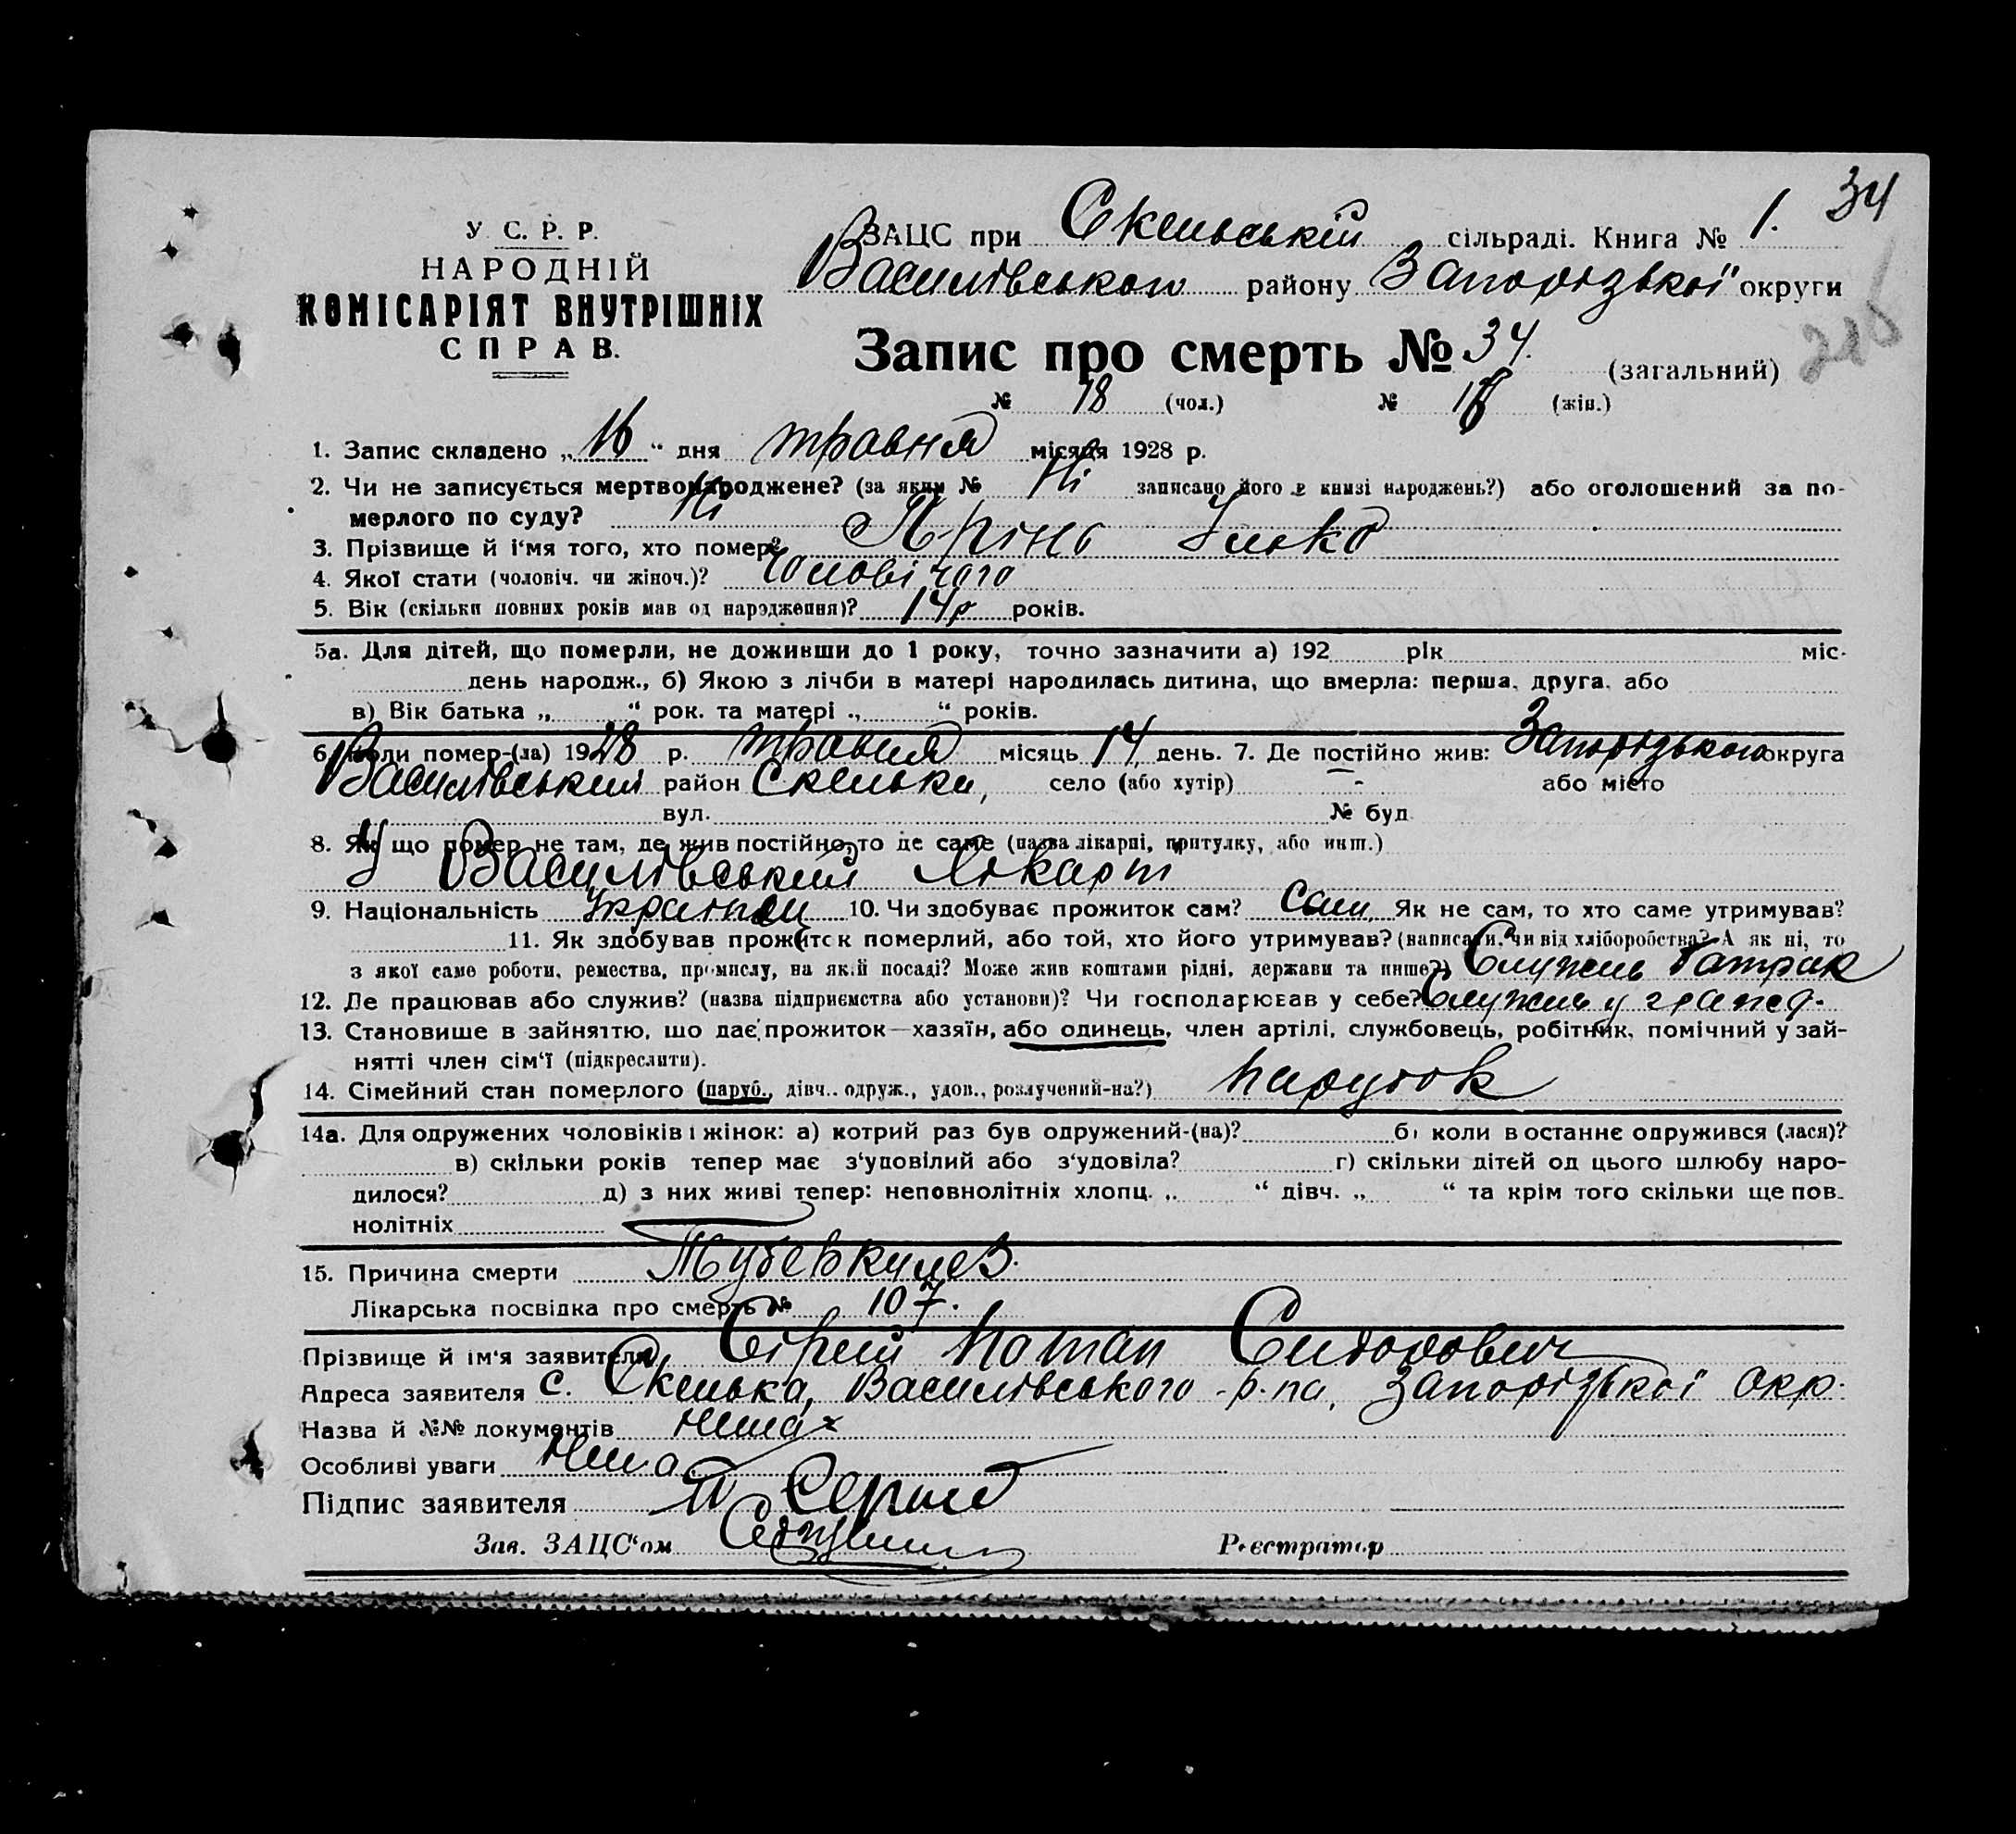 34
У. С. Р. Р.
НАРОДНІЙ
КОМІСАРІЯТ ВНУТРІШНІХ
СПРАВ.
ЗАЦС при Скельській сільраді. Книга № 1.
Василівського району Запорізької округи
Запис про смерть № 34. (загальний)
№ 18 (чол.) № (жін.)
1. Запис складено „16“ дня травня місяця 1928 р.
2. Чи не записується мертвонароджене? (за яким № Ні записано його в книзі народжень?) або оголошений за по-
мерлого по суду? Ні
3. Прізвище й і'мя того, хто помер? Ярінь Ілько
4. Якої стати (чоловіч. чи жіноч.)? Чоловічого
5. Вік (скільки повних років мав од народження)? 14р років.
5а. Для дітей, що померли, не доживши до 1 року, точно зазначити а) 192 рік міс-
день народж., б) Якою з лічби в матері народилась дитина, що вмерла: перша, друга, або
в) Вік батька „ “ рок. та матері „ “ років.
6. Коли помер-(ла) 1928 р. травня місяць 14 день. 7. Де постійно жив: Запорізького округа
Василівський район Скельки, село (або хутір) - або місто
вул. № буд
8. Як що помер не там, де жив постійно, то де саме (назва лікарні, притулку, або инш.)
У Василівський лікарні
9. Національність Українец 10. Чи здобуває прожиток сам? Сам Як не сам, то хто саме утримував?
11. Як здобував прожиток померлий, або той, хто його утримував? (написати, чи від хліборобства? А як ні, то
з якої саме роботи, ремества, промислу, на якій посаді? Може жив коштами рідні, держави та инше?) Служив батрак
12. Де працював або служив? (назва підприємства або установи)? Чи господарював у себе? Служив у
13. Становище в зайняттю, що дає прожиток—хазяїн, або одинець, член артілі, службовець, робітник, помічний у зай-
нятті член сім'ї (підкреслити).
14. Сімейний стан померлого (паруб., дівч.. одруж., удов., розлучений-на?) парубок
14а. Для одружених чоловіків і жінок: а) котрий раз був одружений-(на)? б) коли востаннє одружився (лася)?
в) скільки років тепер має з'удовілий або з'удовіла? г) скільки дітей од цього шлюбу наро-
дилося? д) з них живі тепер: неповнолітніх хлопц. „ “ дівч. „ “ та крім того скільки ще пов-
нолітніх
15. Причина смерти Туберкульоз.
Лікарська посвідка про смерть № 107.
Прізвище й ім'я заявителя Сірий Потап Сидорович
Адреса заявителя с. Скелька, Василівського р-на, Запорізької окр.
Назва й №№ документів Нема
Особливі уваги Нема
Підпис заявителя П Серый
Зав. ЗАЦС'ом Реєстратор